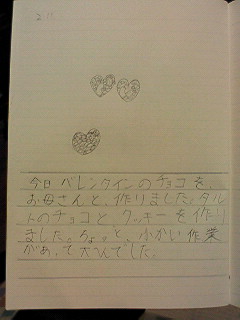 今日バレンタインのチョコを、
お母さんと、作りました。タル
トのチョコと、クッキーを作り
ました。ちょっと、小かい作業
があって大へんでした。